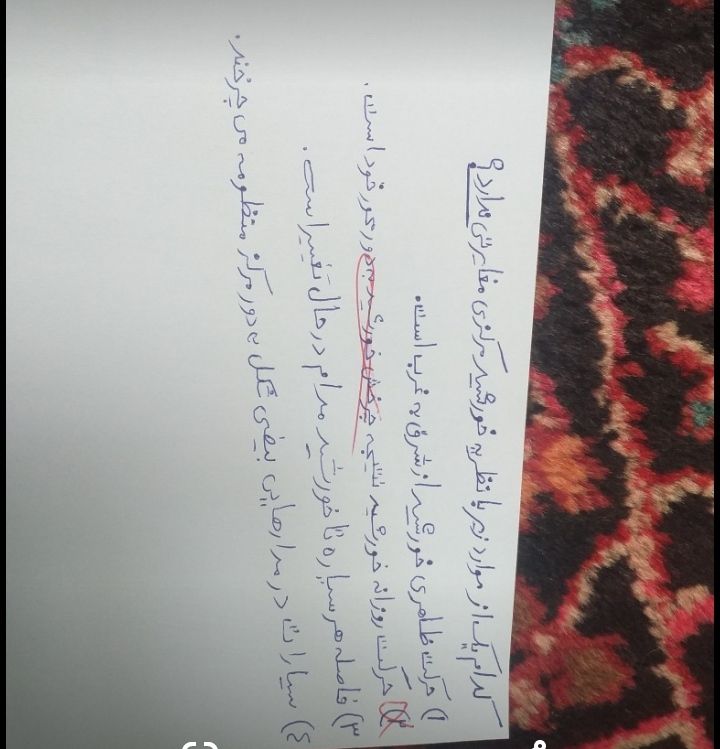 کدام یک از موارد زیر با نظریه خورشید مرکزی مغایرتی ندارد؟
۱) حرکت ظاهری خورشید از شرق به غرب است.
۲) حرکت روزانه خورشید نتیجه چرخش خورشید به دور محور خود است.
۳) فاصله هر سیاره تا خورشید مدام در حال تغییر است.
٤) سیارات در مدارهایی بیضی شکل به دور مرکز منظومه می چرخند.